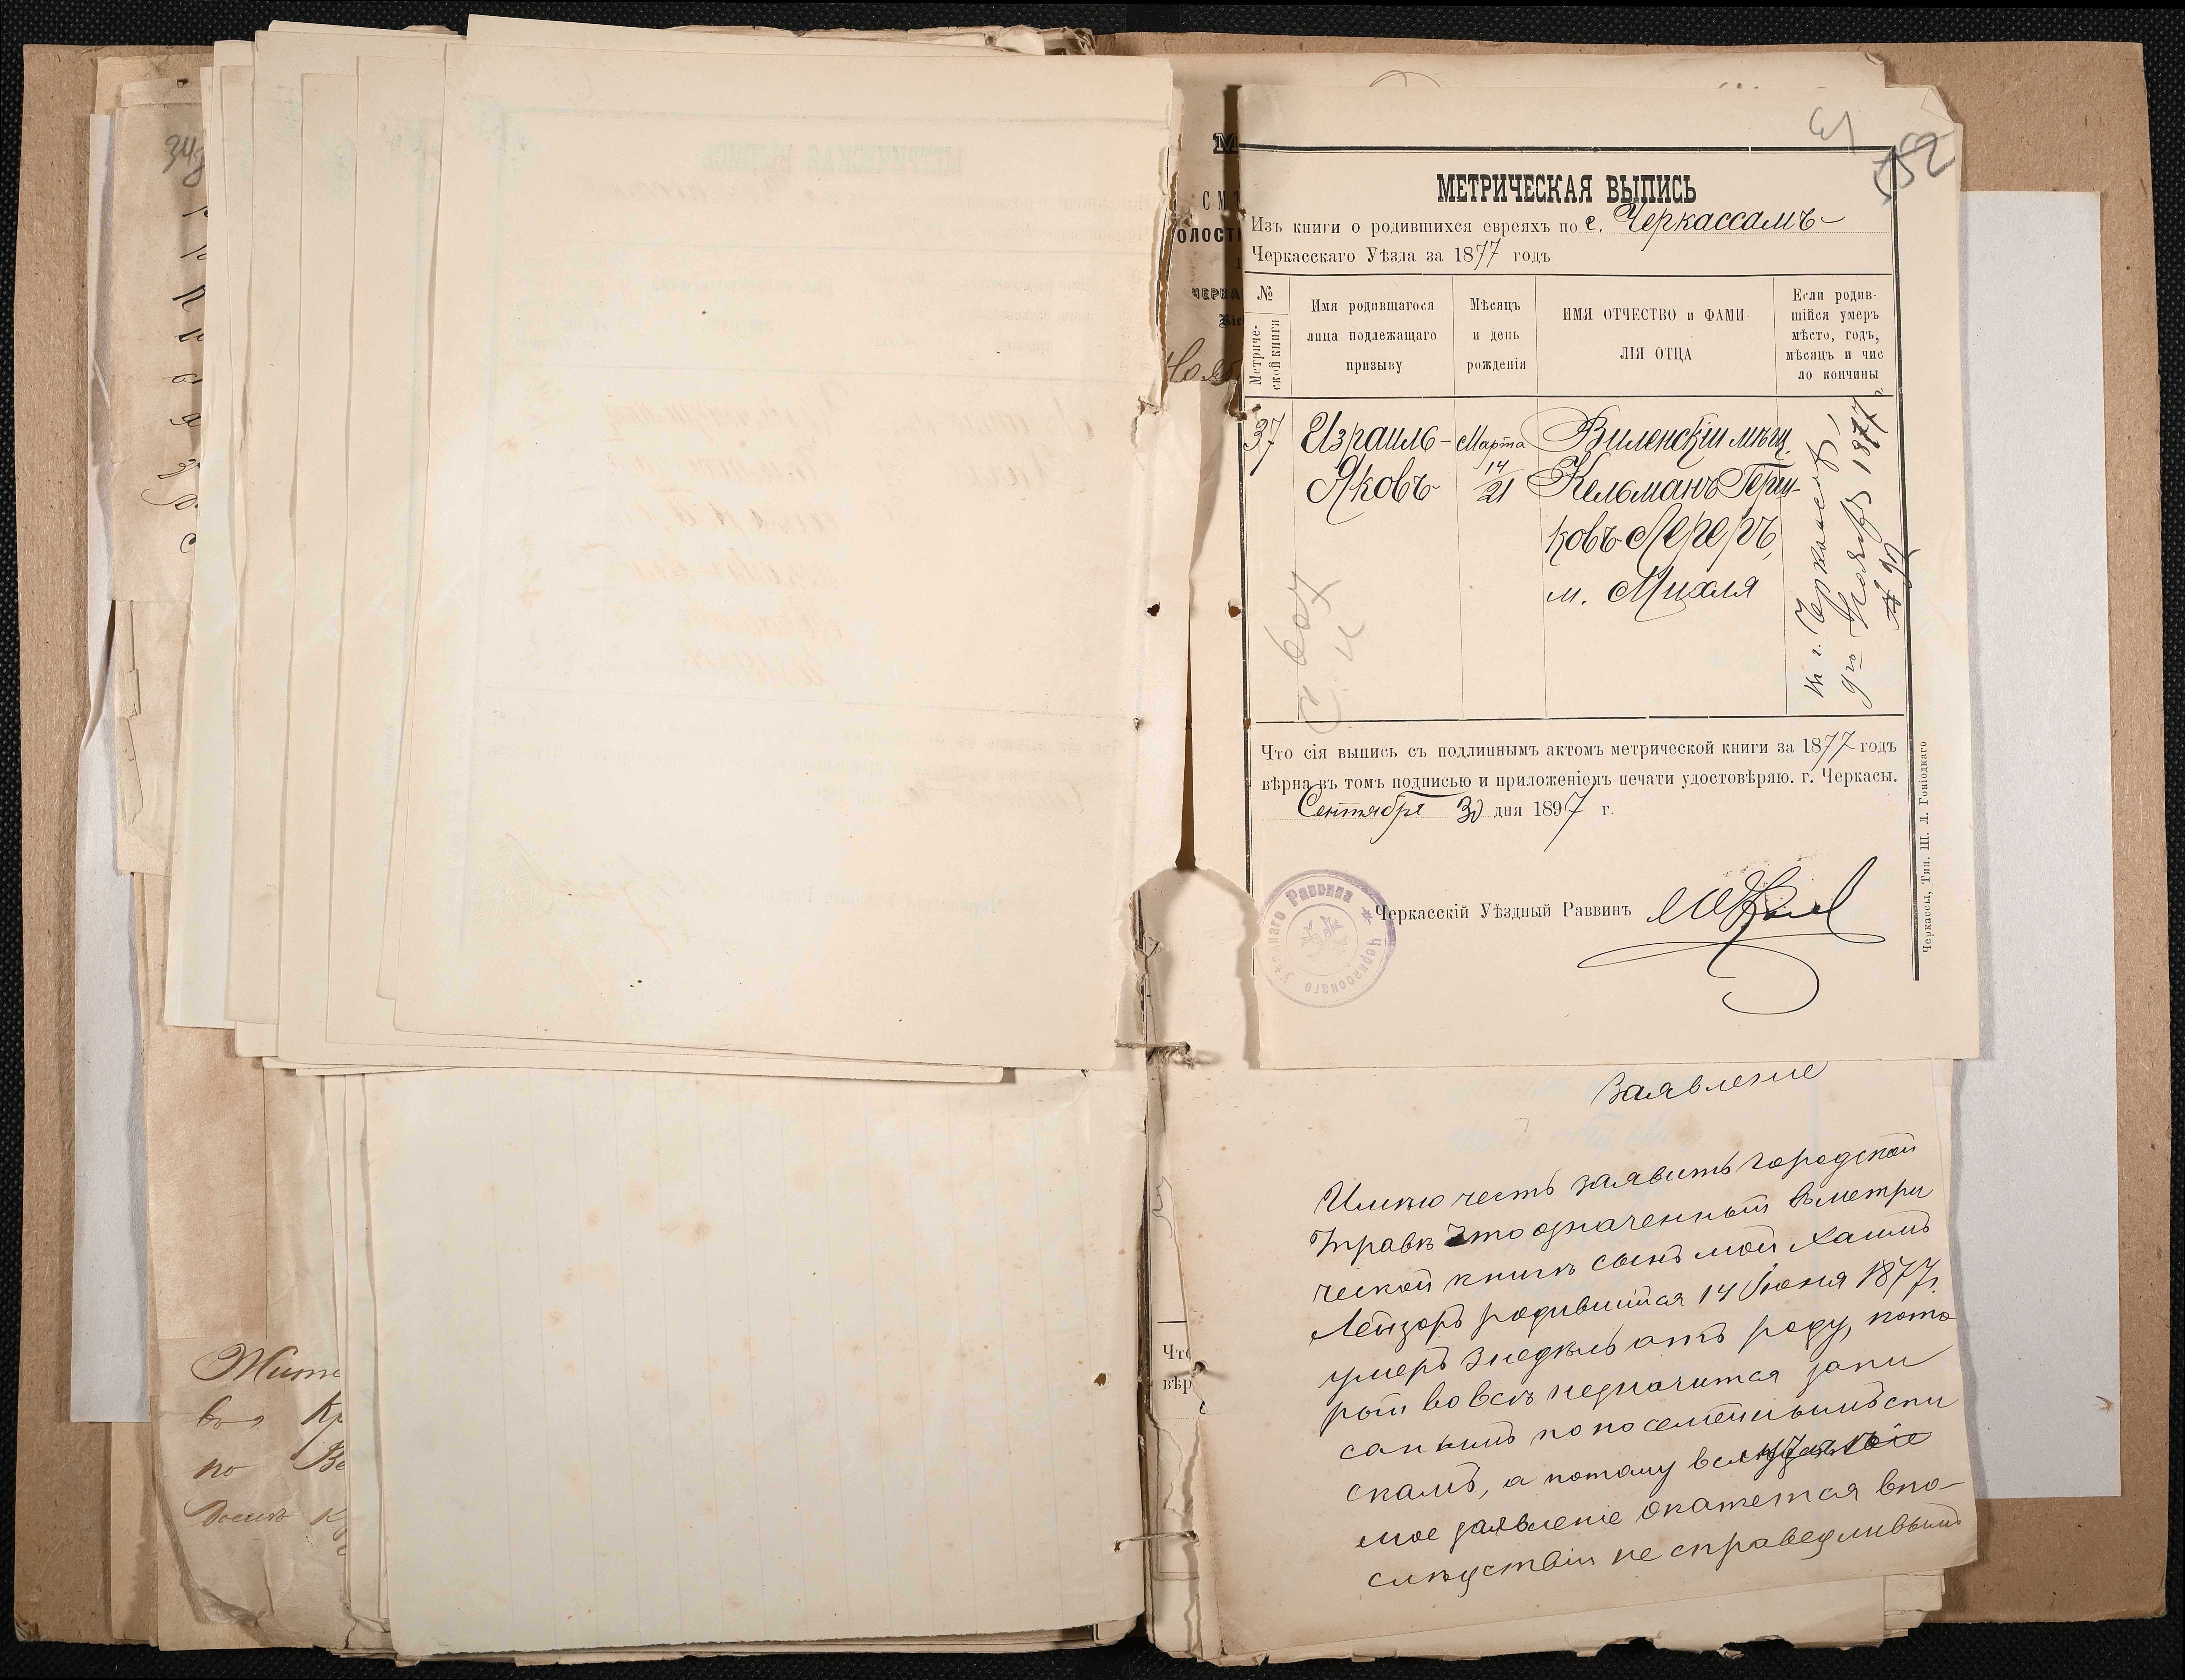 348
Жит
во Кр
по
152
МЕТРИЧЕСКАЯ ВЫПИСЬ
Изъ книги о родившихся евреяхъ по с. Черкассамъ
Черкасскаго Уѣзда за 1877 годъ
№ Метриче-ской книги
Имя родившагося
лица подлежащаго
призыву
Мѣсяцъ
и день
рожденія
ИМЯ ОТЧЕСТВО и ФАМИ-
ЛІЯ ОТЦА
Если родив-
шійся умеръ
мѣсто, годъ,
мѣсяцъ и чис
ло кончины
37
Израиль-
Яковъ
Марта
14/21
Виленскій мѣщ.
Кельманъ Герш-
ковъ Лереръ,
м. Михля
г. Черкассы
1877
Что сія выпись съ подлиннымъ актомъ метрической книги за 1877 годъ
вѣрна въ томъ подписью и приложеніемъ печати удостовѣряю. г. Черкасы.
Сентября 30 дня 1897 г.
Черкасскій Уѣздный Раввинъ
Раввина * Черкасскаго
Черкассы, Тип. Ш. Л. Гоніодкаго
Заявление
Имѣю честь заявить городской
Управѣ что означенный въ метри
ческой книгѣ сынъ мой Хаимъ
Лейзоръ родившийся 14 Июня 1877 г.
умеръ 3 недѣль отъ роду, кото
рый вовсѣ незначится запи
саннымъ по посемейнымъ спи
скамъ, а потому
мое заявленіе окажется впо-
слѣдствіи не справедливымъ